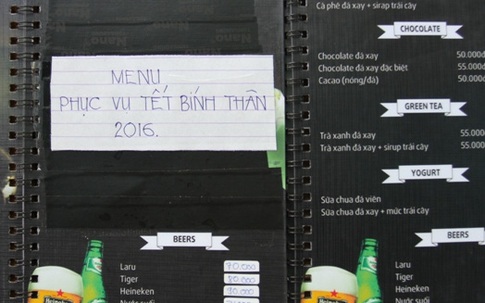 MENU
PHỤC VỤ TẾT BÍNH THÂN
2016.
BEERS
Laru 70.000
Tiger 80.000
Heineken 80.000
Nước suối
Cà phê đá xay + sirap trái cây
CHOCOLATE
Chocolate đá xay 50.000đ
Chocolate đá xay đặc biệt 55.000đ
Cacao (nóng/đá) 50.000đ
GREEN TEA
Trà xanh đá xay 55.000đ
Trà xanh đá xay + sirap trái cây 55.000đ
YOGURT
Sữa chua đá viên
Sữa chua đá xay + mức trái cây
BEERS
Laru
Tiger
Heineken
Nước suối